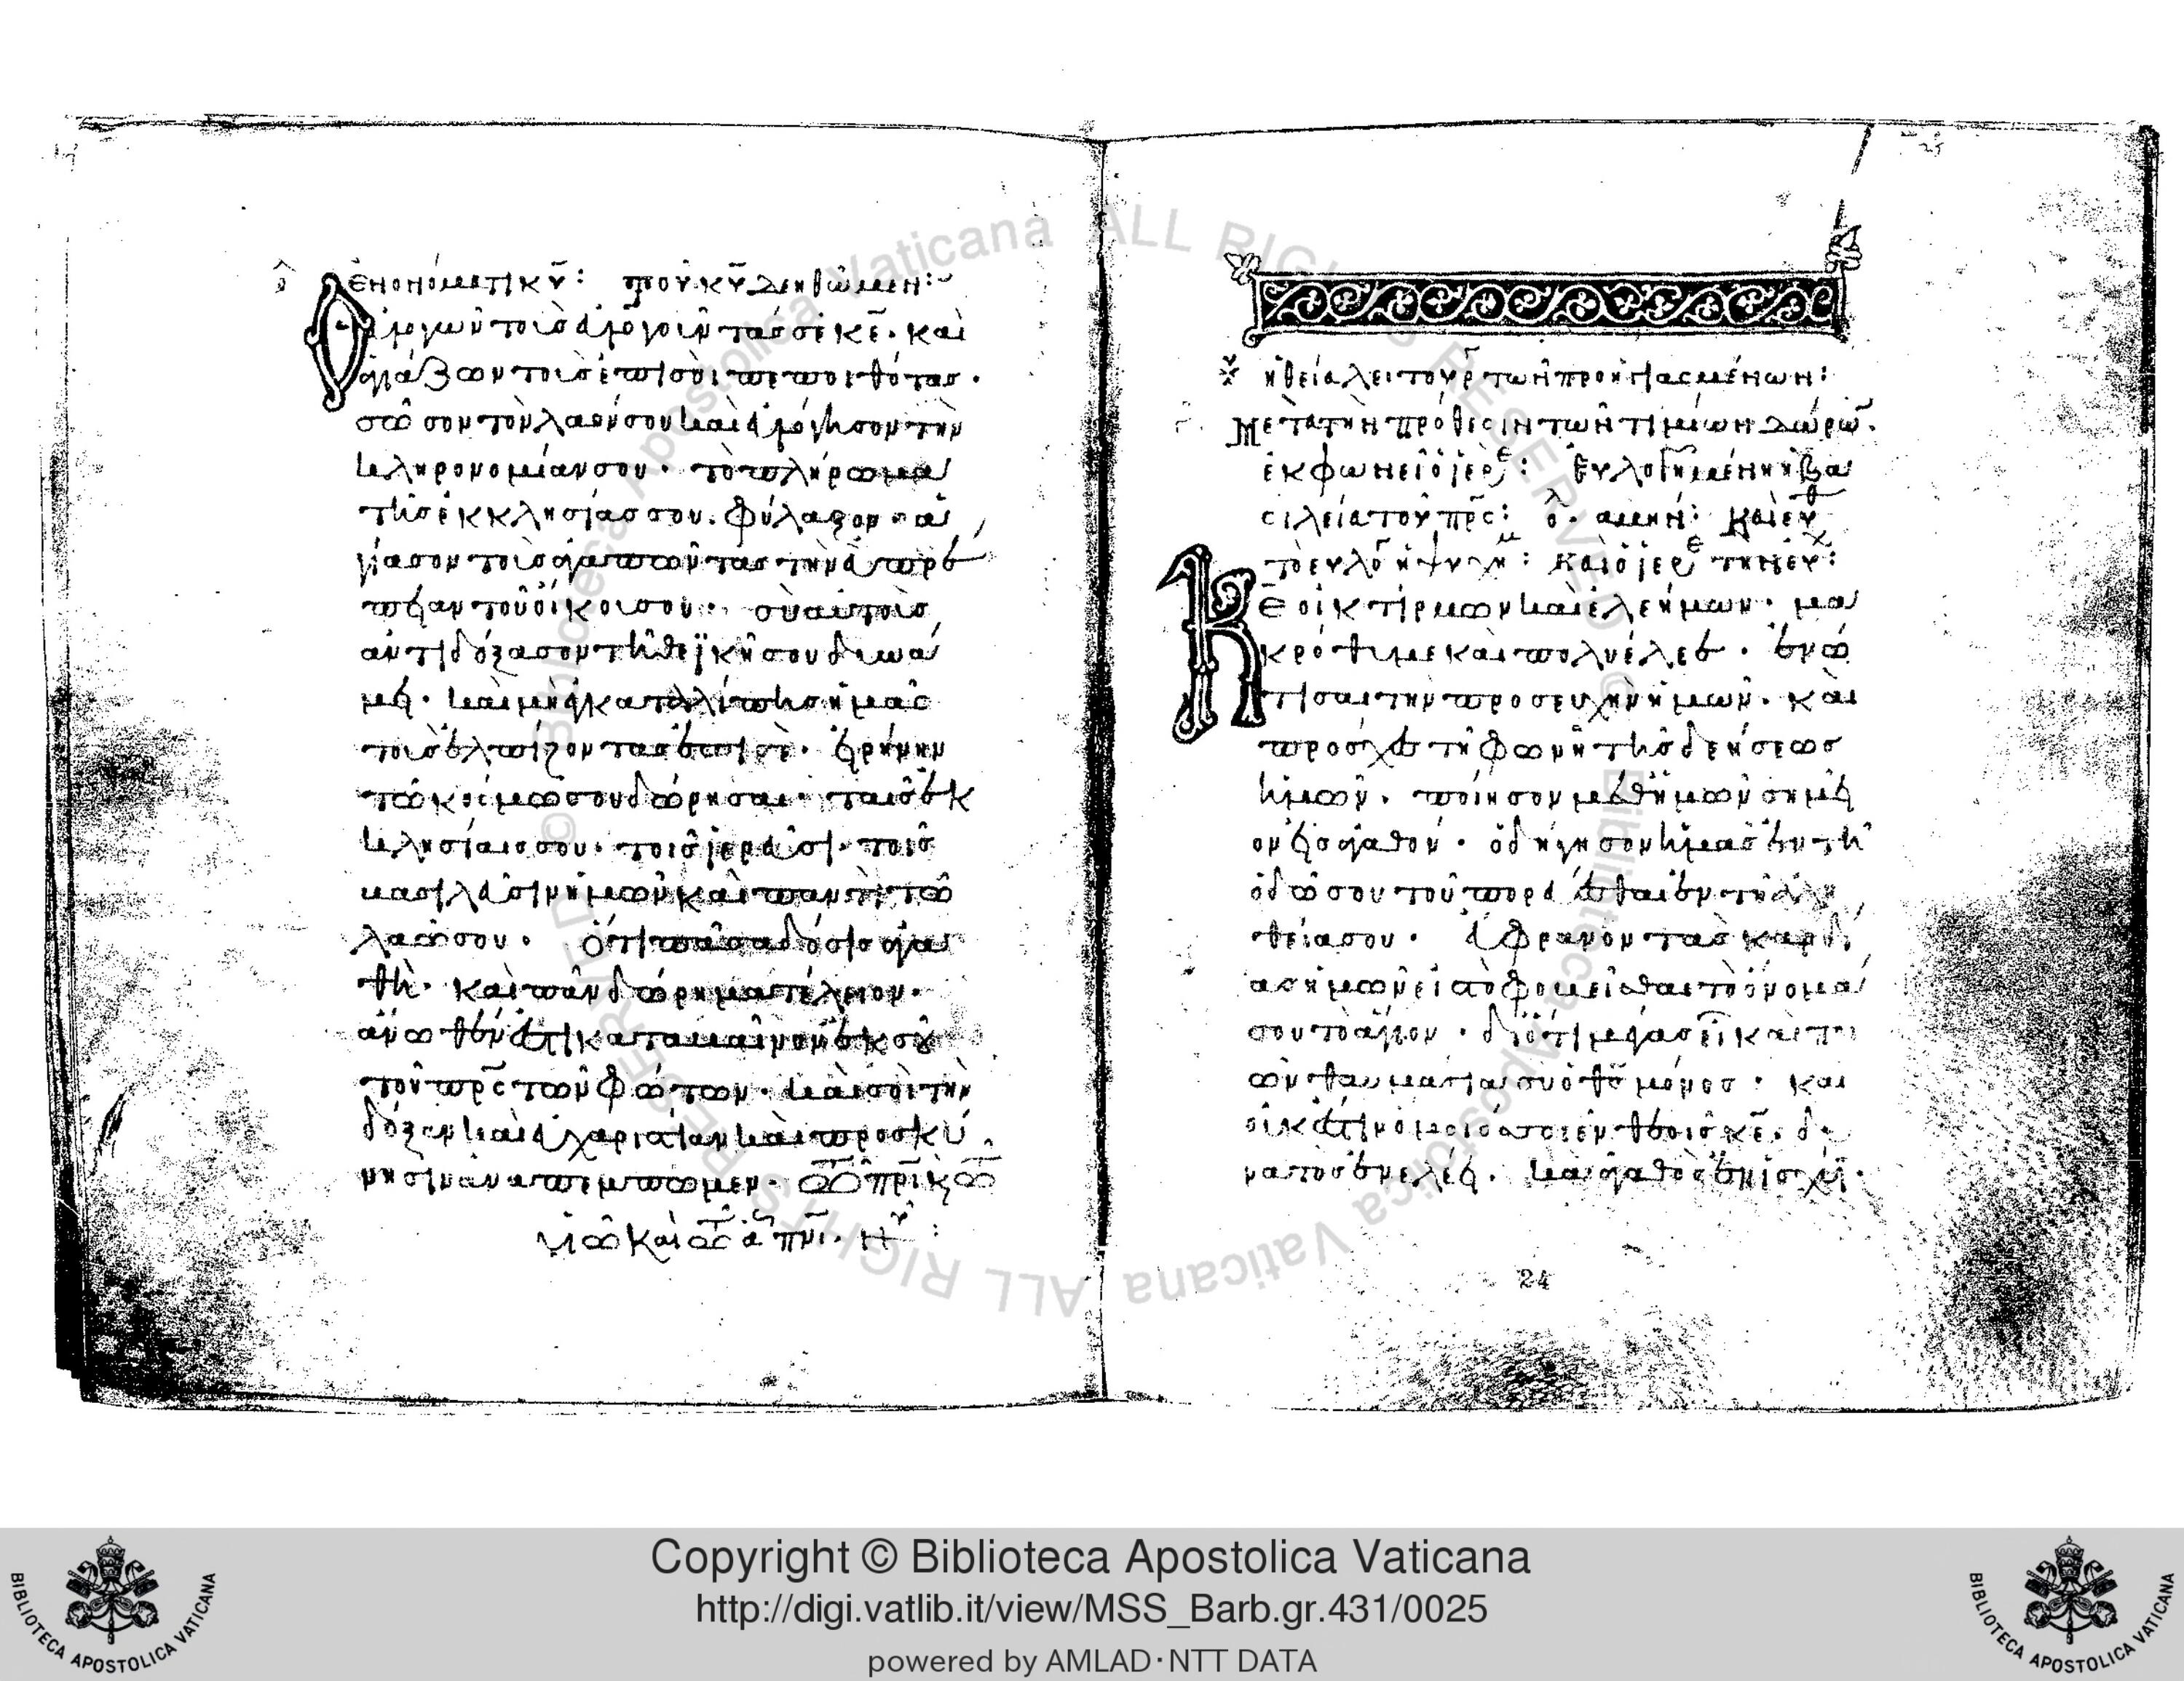 ἐν ὀνόματι κυ: τοῦ κυ δεηθῶμεν:
Ὁ εὐλογῶν τοὺς εὐλογοῦντάς σε κε. καὶ
ἁγιάζων τοὺς ἐπὶ σοὶ πεποιθότας.
σῶσον τὸν λαόν σου καὶ εὐλόγησον τὴν
κληρονομίαν σου. τὸ πλήρωμα
τῆς ἐκκλησίας σου φύλαξον. ἁ
γίασον τοὺς ἀγαπῶντας τὴν εὐπρέ
πειαν τοῦ οἴκου σου. σὺ αὐτοὺς
ἀντιδόξασον τῇ θεϊκῇ σου δυνά
μει. καὶ μὴ ἐγκαταλίπῃς ἡμᾶς
τοὺς ἐλπίζοντας ἐπὶ σέ. εἰρήνην
τῶ κόσμω σου δώρησαι. ταῖς ἐκ
κλησίαις σου. τοῖς ἱερεῦσι. τοῖς
βασιλεῦσιν ἡμῶν καὶ παντὶ τῶ
λαῶ σου. ὅτι πᾶσα δόσις ἀγα
θὴ. καὶ πᾶν δώρημα τέλειον.
ἄνωθέν ἐστι καταβαῖνον ἐκ σοῦ
τοῦ πρς τῶν φώτων. καὶ σοὶ τὴν
δόξαν καὶ εὐχαριστίαν καὶ προσκύ
νησιν ἀναπέμπομεν. τῶ πρι κ τῶ
υἱῶ καὶ τῶ ἁ πνι. ν
ἡ θεία λειτουρ τῶν προηγιασμένων:
Μετὰ τὴν πρόθεσιν τῶν τιμίων δώρω.
ἐκφωνεῖ ὁ ἱερε: Εὐλογημένη ἡ βα
σιλεία τοῦ πρς: ὁ λ. ἀμήν: Καὶ εὐθ
τὸ εὐλό ἡ ψυχή μ: καὶ ὁ ἱερε τὴν εὐχ:
Κε οἰκτίρμων καὶ ἐλεήμων. μα
κρόθυμε καὶ πολυέλεε. ἐνώ
τισαι τὴν προσευχὴν ἡμῶν. καὶ
πρόσχες τῇ φωνῇ τῆς δεήσεως
ἡμῶν. ποίησον μεθ ἡμῶν σημεῖ
ον εἰς ἀγαθόν. ὁδήγησον ἡμᾶς ἐν τῇ
ὁδῶ σου τοῦ πορεύεσθαι ἐν τῇ ἀλη
θεία σου. εὔφρανον τὰς καρδί
ας ἡμῶν εἰς τὸ φοβεῖσθαι τὸ ὄνομά
σου τὸ ἅγιον. διότι μέγας εἶ καὶ ποι
ῶν θαυμάσια συ ὁ θς μόνος. καὶ
οὐκ ἔστιν ὅμοιός σοι ἐν θεοῖς κε. δυ
νατὸς ἐν ἐλέει. καὶ ἀγαθὸς ἐν ἰσχύϊ.
24
Copyright © Biblioteca Apostolica Vaticana
http://digi.vatlib.it/view/MSS_Barb.gr.431/0025
powered by AMLAD·NTT DATA
BIBLIOTECA APOSTOLICA VATICANA
BIBLIOTECA APOSTOLICA VATICANA